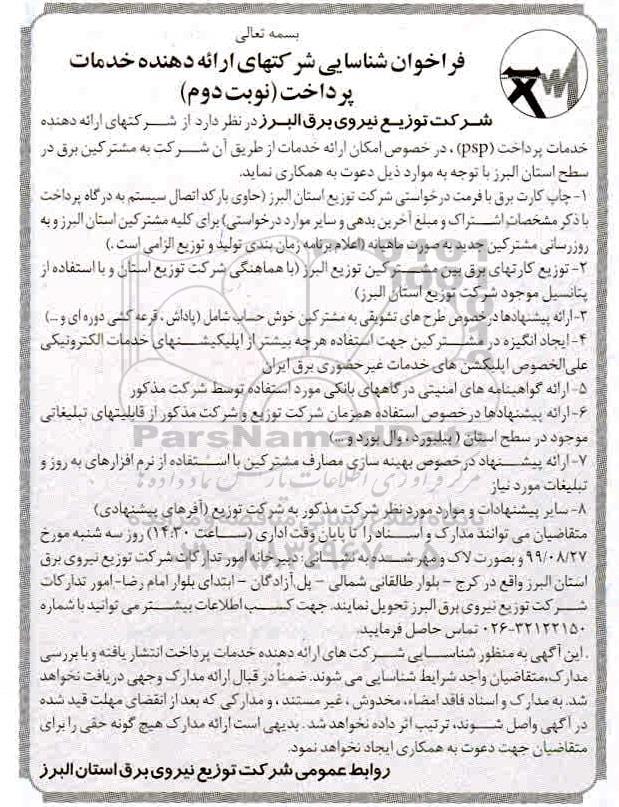 بسمه تعالی
فراخوان شناسایی شرکتهای ارائه دهنده خدمات
پرداخت (نوبت دوم)
شرکت توزیع نیروی برق البرز در نظر دارد از شرکتهای ارائه دهنده
خدمات پرداخت (psp)، در خصوص امکان ارائه خدمات از طریق آن شرکت به مشترکین برق در
سطح استان البرز با توجه به موارد ذیل دعوت به همکاری نماید.
۱- چاپ کارت برق با فرمت درخواستی شرکت توزیع استان البرز (حاوی بارکد اتصال سیستم به درگاه پرداخت
با ذکر مشخصات اشتراک و مبلغ آخرین بدهی و سایر موارد درخواستی) برای کلیه مشترکین استان البرز و به
روزرسانی مشترکین جدید به صورت ماهیانه (اعلام برنامه زمان بندی تولید و توزیع الزامی است.)
۲- توزیع کارتهای برق بین مشترکین توزیع البرز (با هماهنگی شرکت توزیع استان و با استفاده از
پتانسیل موجود شرکت توزیع استان البرز)
۳- ارائه پیشنهادها در خصوص طرح های تشویقی به مشترکین خوش حساب شامل (پاداش، قرعه کشی دوره ای و ...)
۴- ایجاد انگیزه در مشترکین جهت استفاده هرچه بیشتر از اپلیکیشنهای خدمات الکترونیکی
علی الخصوص اپلیکشن های خدمات غیرحضوری برق ایران
۵- ارائه گواهینامه های امنیتی درگاههای بانکی مورد استفاده توسط شرکت مذکور
۶- ارائه پیشنهادها درخصوص استفاده همزمان شرکت توزیع و شرکت مذکور از قابلیتهای تبلیغاتی
موجود در سطح استان (بیلبورد، وال بورد و ...)
۷- ارائه پیشنهاد درخصوص بهینه سازی مصارف مشترکین با استفاده از نرم افزارهای به روز و
تبلیغات مورد نیاز
۸- سایر پیشنهادات و موارد مورد نظر شرکت مذکور به شرکت توزیع (آفرهای پیشنهادی)
متقاضیان می توانند مدارک و اسناد را تا پایان وقت اداری (ساعت ۱۴:۳۰) روز سه شنبه مورخ
۹۹/۰۸/۲۷ و بصورت لاک و مهر شده به نشانی: دبیرخانه امور تدارکات شرکت توزیع نیروی برق
استان البرز واقع در کرج - بلوار طالقانی شمالی - پل آزادگان - ابتدای بلوار امام رضا- امور تدارکات
شرکت توزیع نیروی برق البرز تحویل نمایند. جهت کسب اطلاعات بیشتر می توانید با شماره
۰۲۶-۳۲۱۲۲۱۵۰ تماس حاصل فرمایید.
. این آگهی به منظور شناسایی شرکت های ارائه دهنده خدمات پرداخت انتشار یافته و با بررسی
مدارک، متقاضیان واجد شرایط شناسایی می شوند. ضمناً در قبال ارائه مدارک وجهی دریافت نخواهد
شد. به مدارک و اسناد فاقد امضاء، مخدوش، غیر مستند، و مدارکی که بعد از انقضای مهلت قید شده
در آگهی واصل شوند، ترتیب اثر داده نخواهد شد. بدیهی است ارائه مدارک هیچ گونه حقی را برای
متقاضیان جهت دعوت به همکاری ایجاد نخواهد نمود.
روابط عمومی شرکت توزیع نیروی برق استان البرز
ParsNamadData